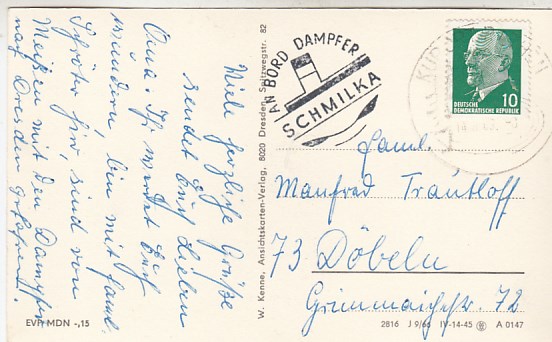 Viele herzliche Grüße
sendet Euch Lieben
Oma. Ihr werdet Euch
wundern, bin mit Faml.
Schröter hier, sind von
Meißen mit den Dampfer
nach Dresden gefahren.
AN BORD DAMPFER
SCHMILKA
10
DEUTSCHE
DEMOKRATISCHE REPUBLIK
W. Kenne, Ansichtskarten-Verlag, 8020 Dresden, Spitzwegstr. 82
Faml.
Manfred Trautloff
73 Döbeln
Grimmaischestr. 72
EVP MDN -,15
2816 J 9/66 IV-14-45 A 0147